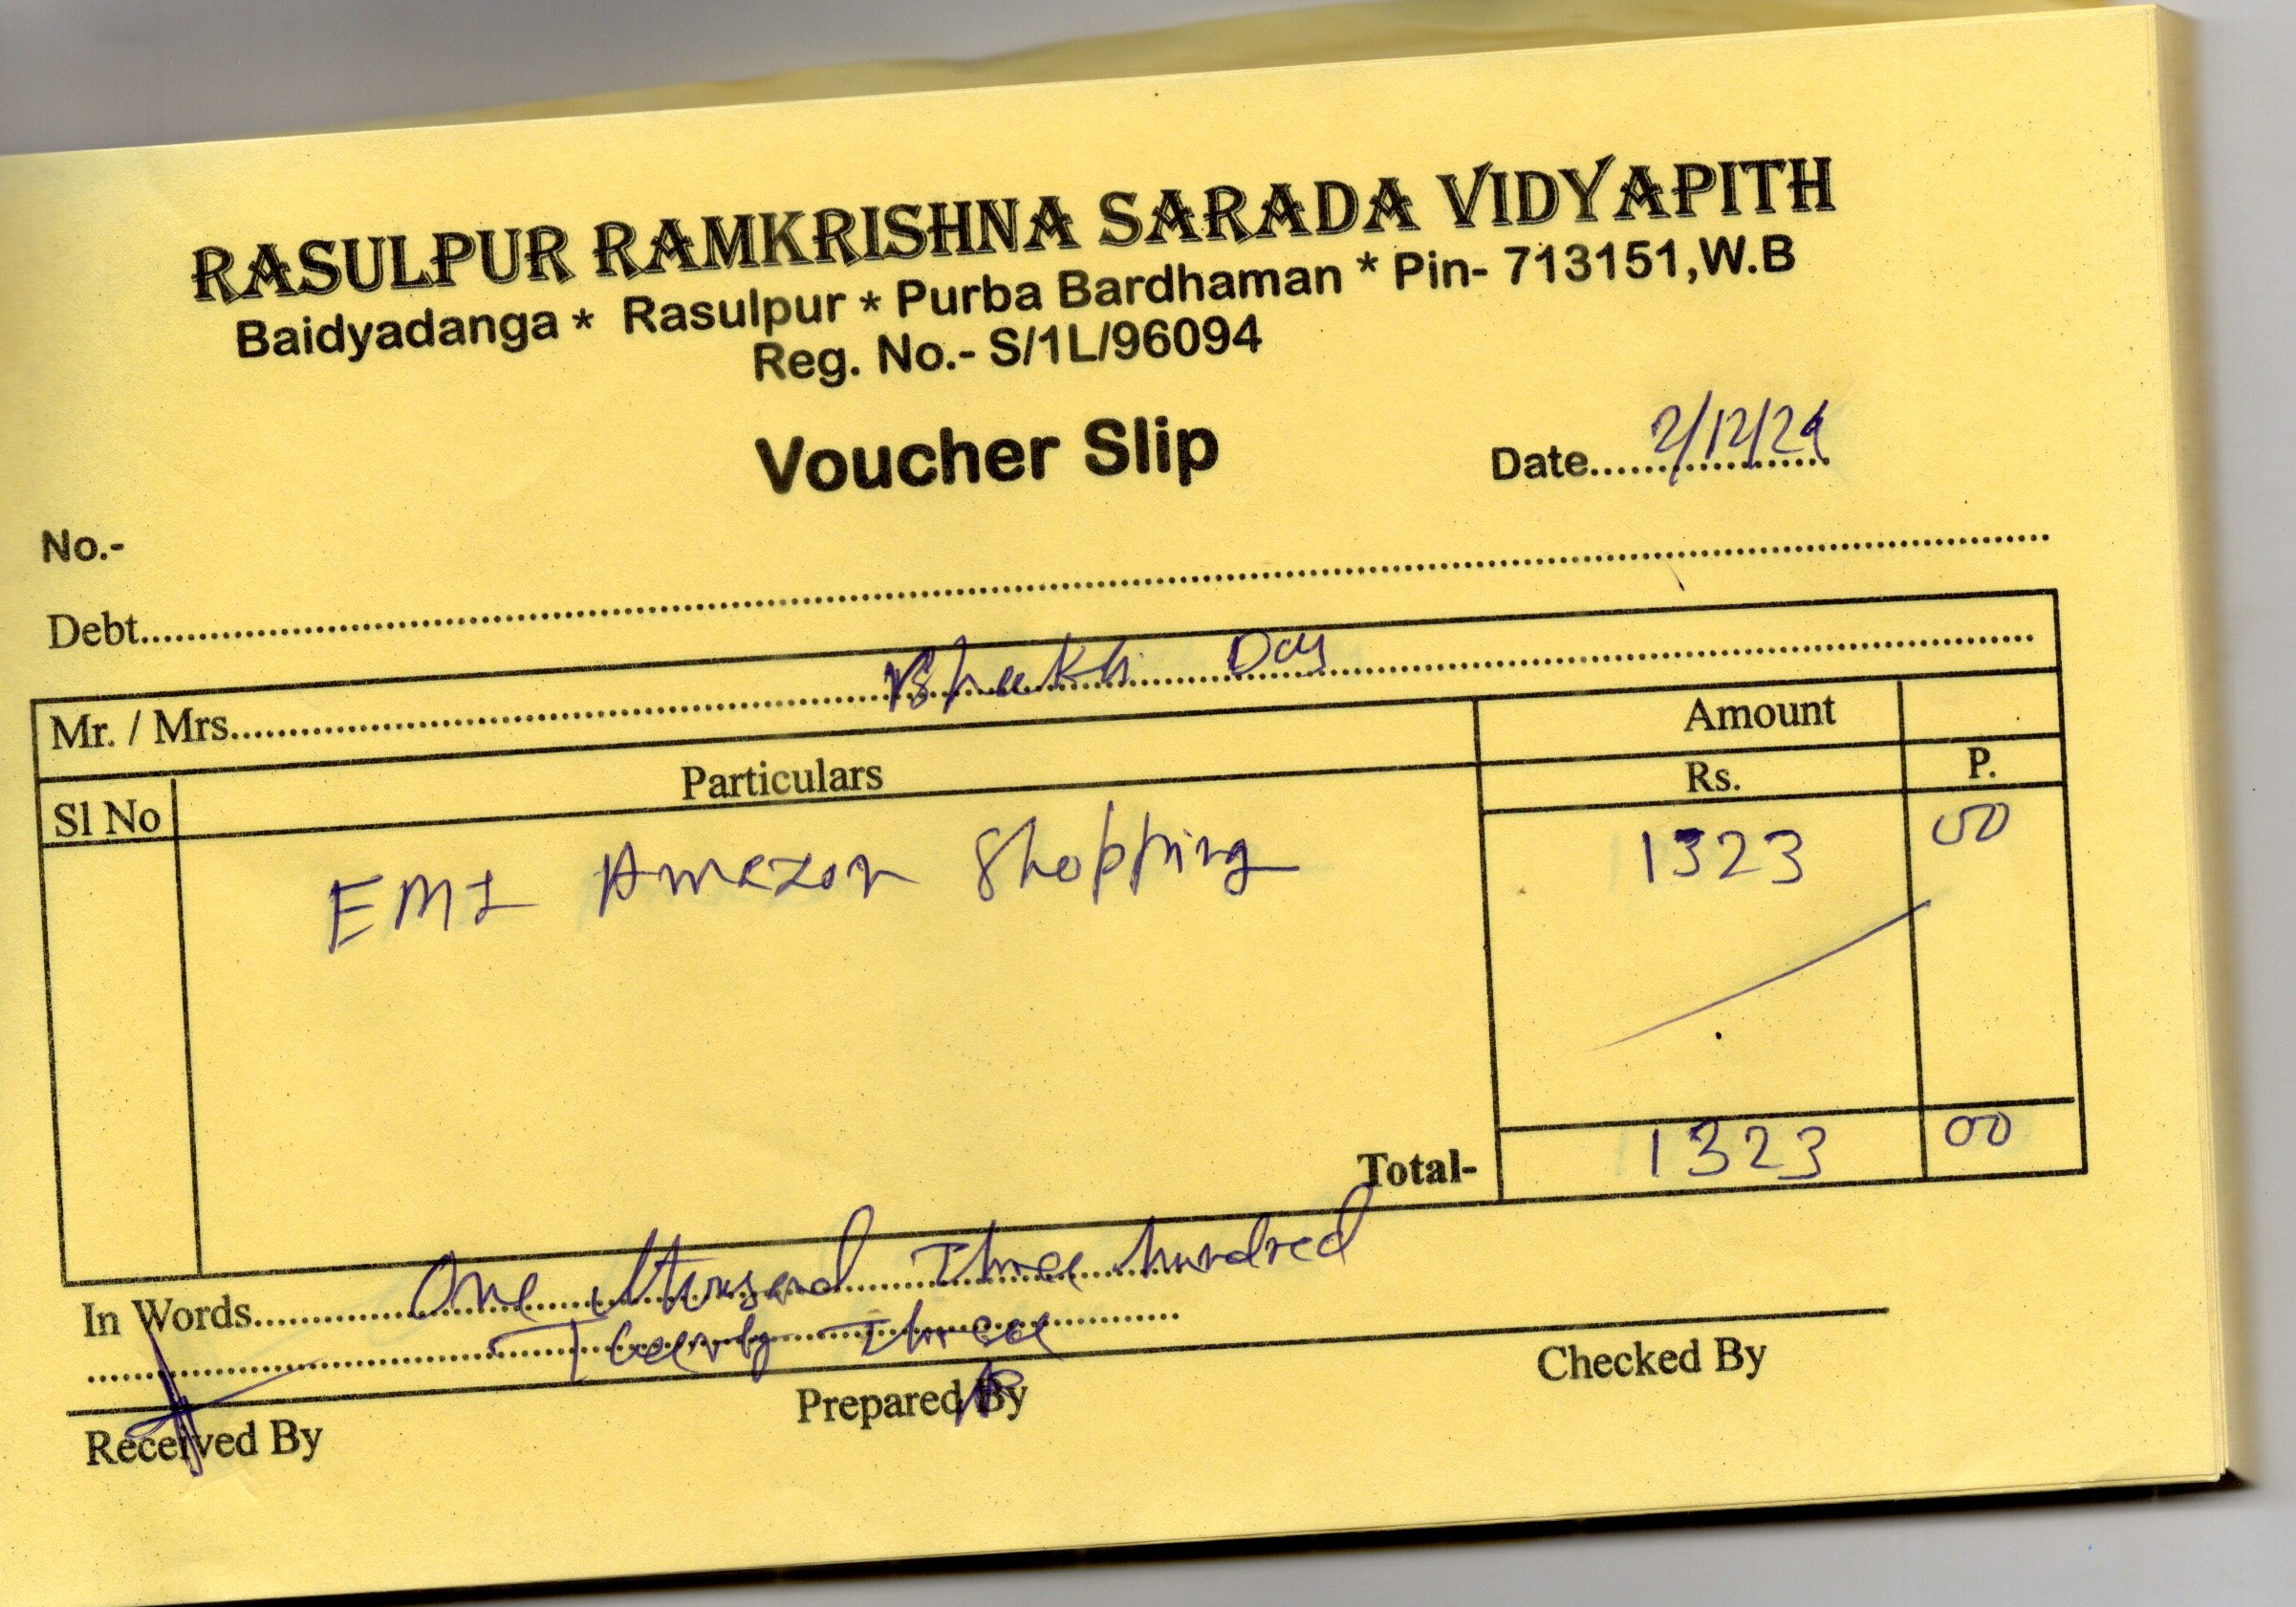 RASULPUR RAMKRISHNA SARADA VIDYAPITH
Baidyadanga * Rasulpur * Purba Bardhaman * Pin- 713151,W.B
Reg. No.- S/1L/96094
Voucher Slip
Date..... 2/12/24
No.-
Debt.....
Mr. / Mrs..... Das
Sl No Particulars Amount
Rs. P.
EMI Amazon Shopping 1323 00
Total- 1323 00
In Words..... One thousand Three hundred
Twenty Three
Received By Prepared By Checked By